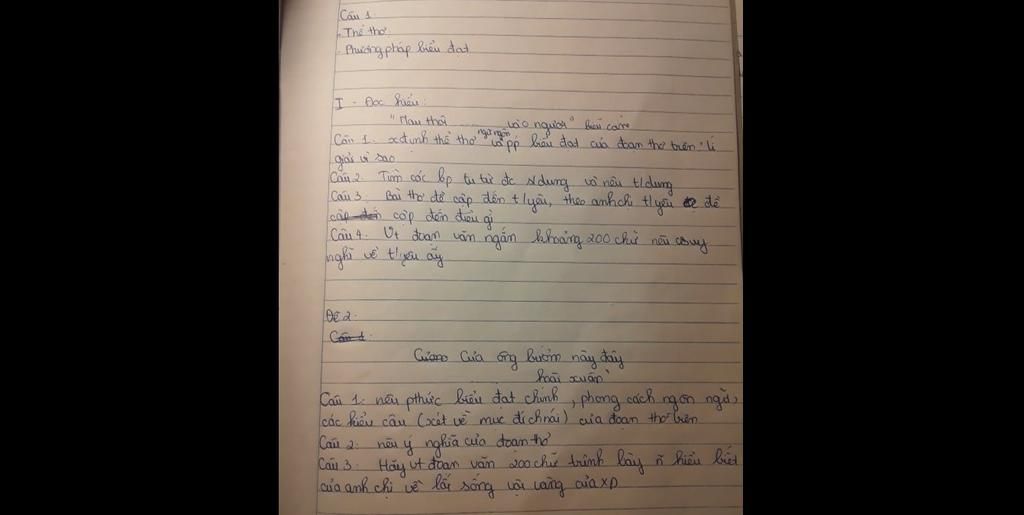 Câu 1.
- Thể thơ
- Phương pháp biểu đạt
I - Đọc hiểu:
"Mau thôi ........ vào người" biểu cảm
Câu 1. xđịnh thể thơ ngôn ngữ và pp biểu đạt của đoạn thơ trên. lí
giải vì sao
Câu 2. Tìm các bp tu từ đc s/dụng và nêu t/dụng
Câu 3. Bài thơ đề cập đến t/yêu, theo anh chị t/yêu đề
cập đến cập đến điều gì
Câu 4. Vt đoạn văn ngắn khoảng 200 chữ nêu suy
nghĩ về t/yêu ấy
Đề 2.
Câu 1
Của ong bướm này đây
hoài xuân"
Câu 1. nêu pthức biểu đạt chính, phong cách ngôn ngữ,
các kiểu câu (xét về mục đích nói) của đoạn thơ trên
Câu 2. nêu ý nghĩa của đoạn thơ
Câu 3. Hãy vt đoạn văn 200 chữ trình bày n hiểu biết
của anh chị về lối sống vội vàng của XD